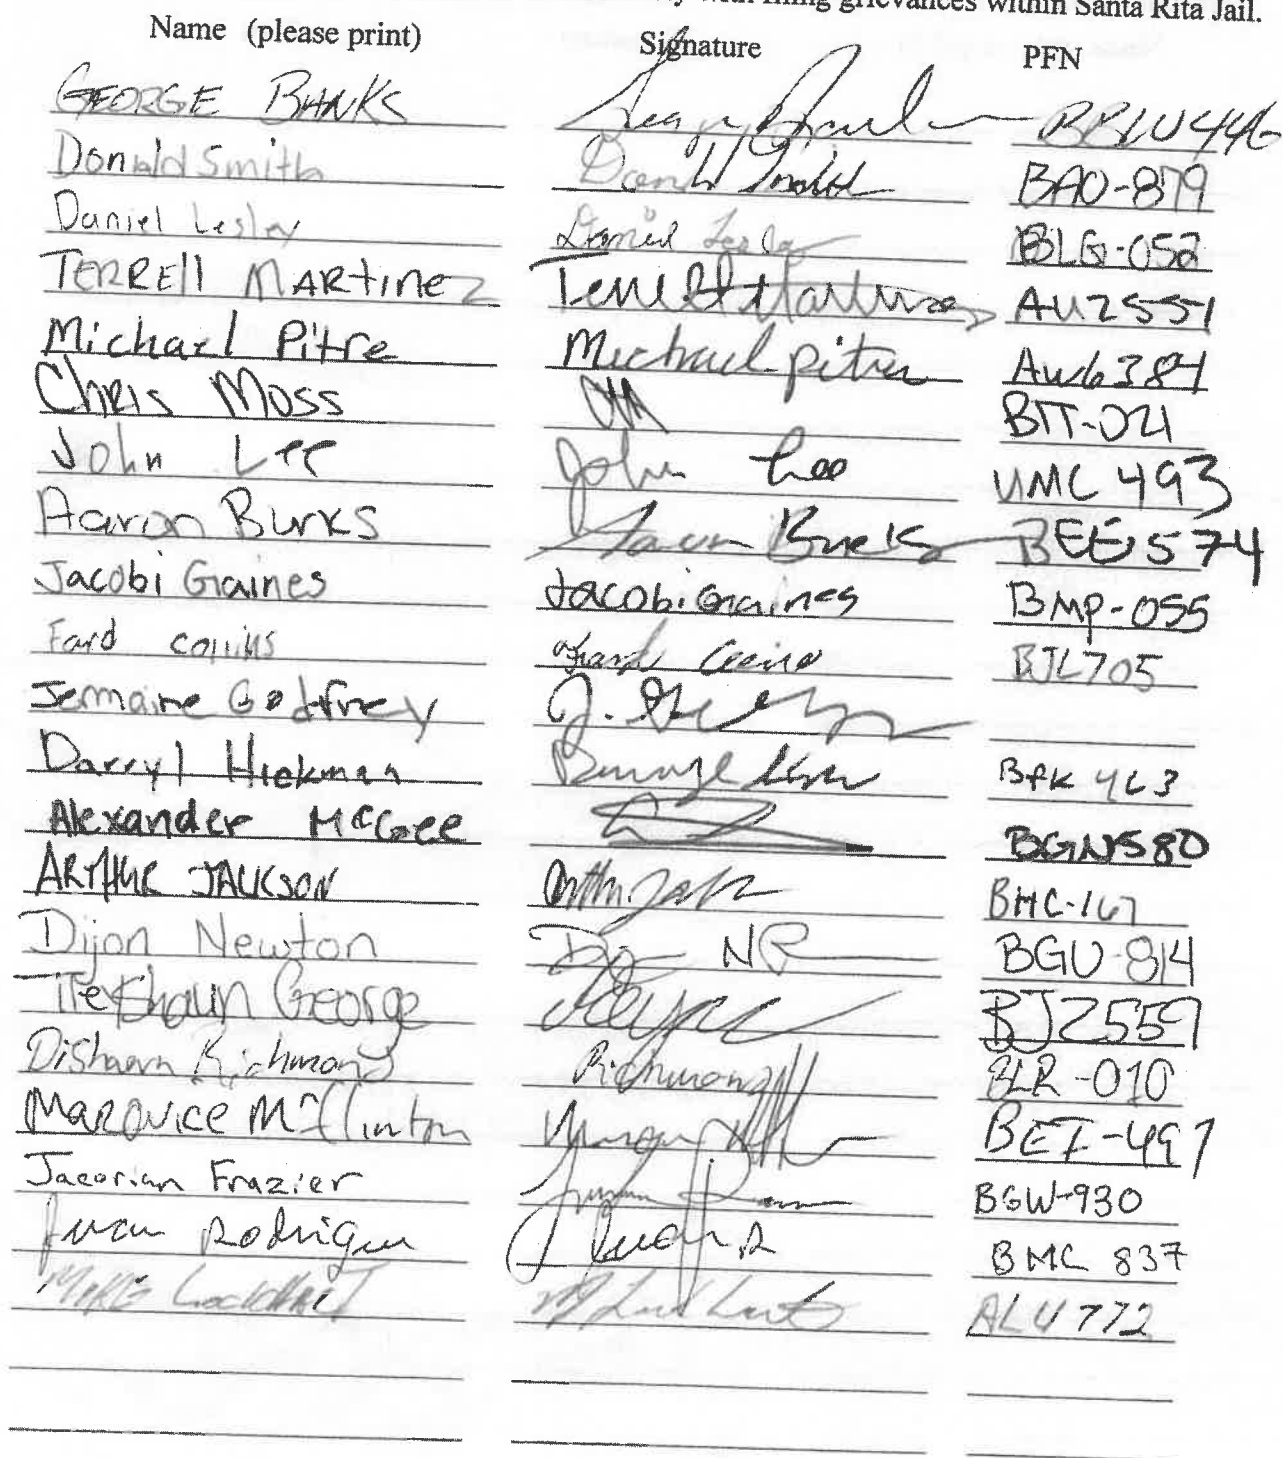 with filing grievances within Santa Rita Jail.
Name (please print) Signature PFN
GEORGE BANKS
Donald Smith Donald Smith BAO-879
Daniel Lesley Daniel Lesley BLG-052
TERREll MARtinez Terrell Martinez AUZ551
Michael Pitre Michael pitre AW6384
Chris Moss CM BTT-021
John Lee John Lee UMC 493
Aaron Burks Aaron Burks BEE574
Jacobi Gaines Jacobi Gaines BMP-055
Fard Collins BJL705
Jermaine Godfrey
Darryl Hickman
Alexander McGee BGN580
ARTHUR JACKSON BHC-167
Dijon Newton BGU-814
George BJZ559
Dishawn Richmond Richmond BLR-010
Marquice McClinton BEI-497
Jacorian Frazier BGW-930
Juan Rodriguez Juan R BMC 837
MIKE Lockhart ALU772